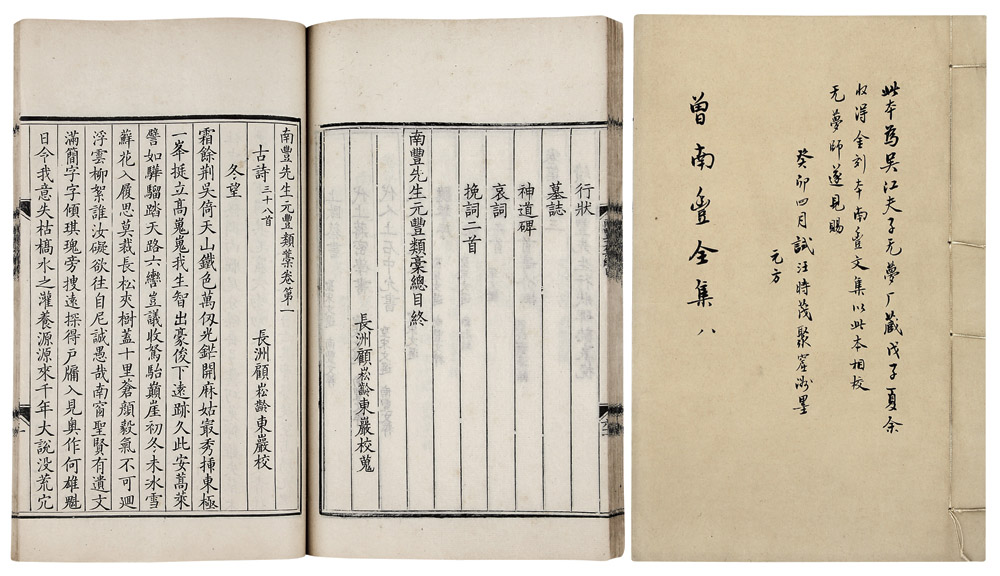 此本為吳江夫子无夢厂藏戊子夏余
收得金刻本南豐文集以此本相校
无夢師遂見賜
癸卯四月試汪時茂聚窑洲墨
元方
曾南豐全集 八
行狀
墓誌
神道碑
哀詞
挽詞二首
南豐先生元豐類稾總目終
長洲顧崧齡東巖校蒐
南豐先生元豐類藁卷第一
古詩三十八首 長洲顧崧齡東巖校
冬望
霜餘荆吳倚天山鐵色萬仭光鋩開麻姑㝡秀揷東極
一峯挺立高嵬嵬我生智出豪俊下遠跡久此安蒿萊
譬如驊騮踏天路六轡豈議收駑駘巔崖初冬未冰雪
蘚花入履思莫裁長松夾樹蓋十里蒼顏毅氣不可迴
浮雲柳絮誰汝礙欲往自尼誠愚哉南窻聖賢有遺文
滿簡字字傾琪瑰旁搜遠探得戶牖入見奥作何雄魁
日令我意失枯槁水之灌養源源來千年大說沒荒宂